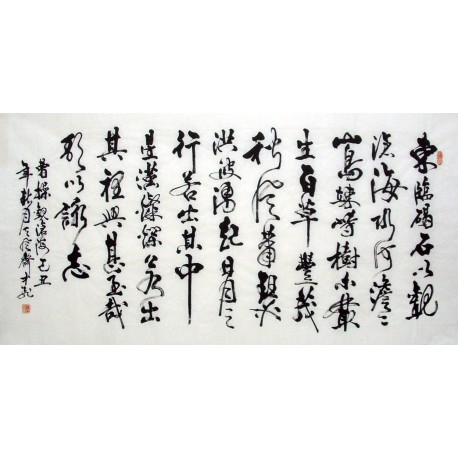 東臨碣石以觀
滄海水何澹々
山島竦峙樹木叢
生百草豐茂
秋風蕭瑟
洪波湧起日月之
行若出其中
星漢燦爛若出
其裡幸甚至哉
歌以詠志
曹操觀滄海己丑
年秋月